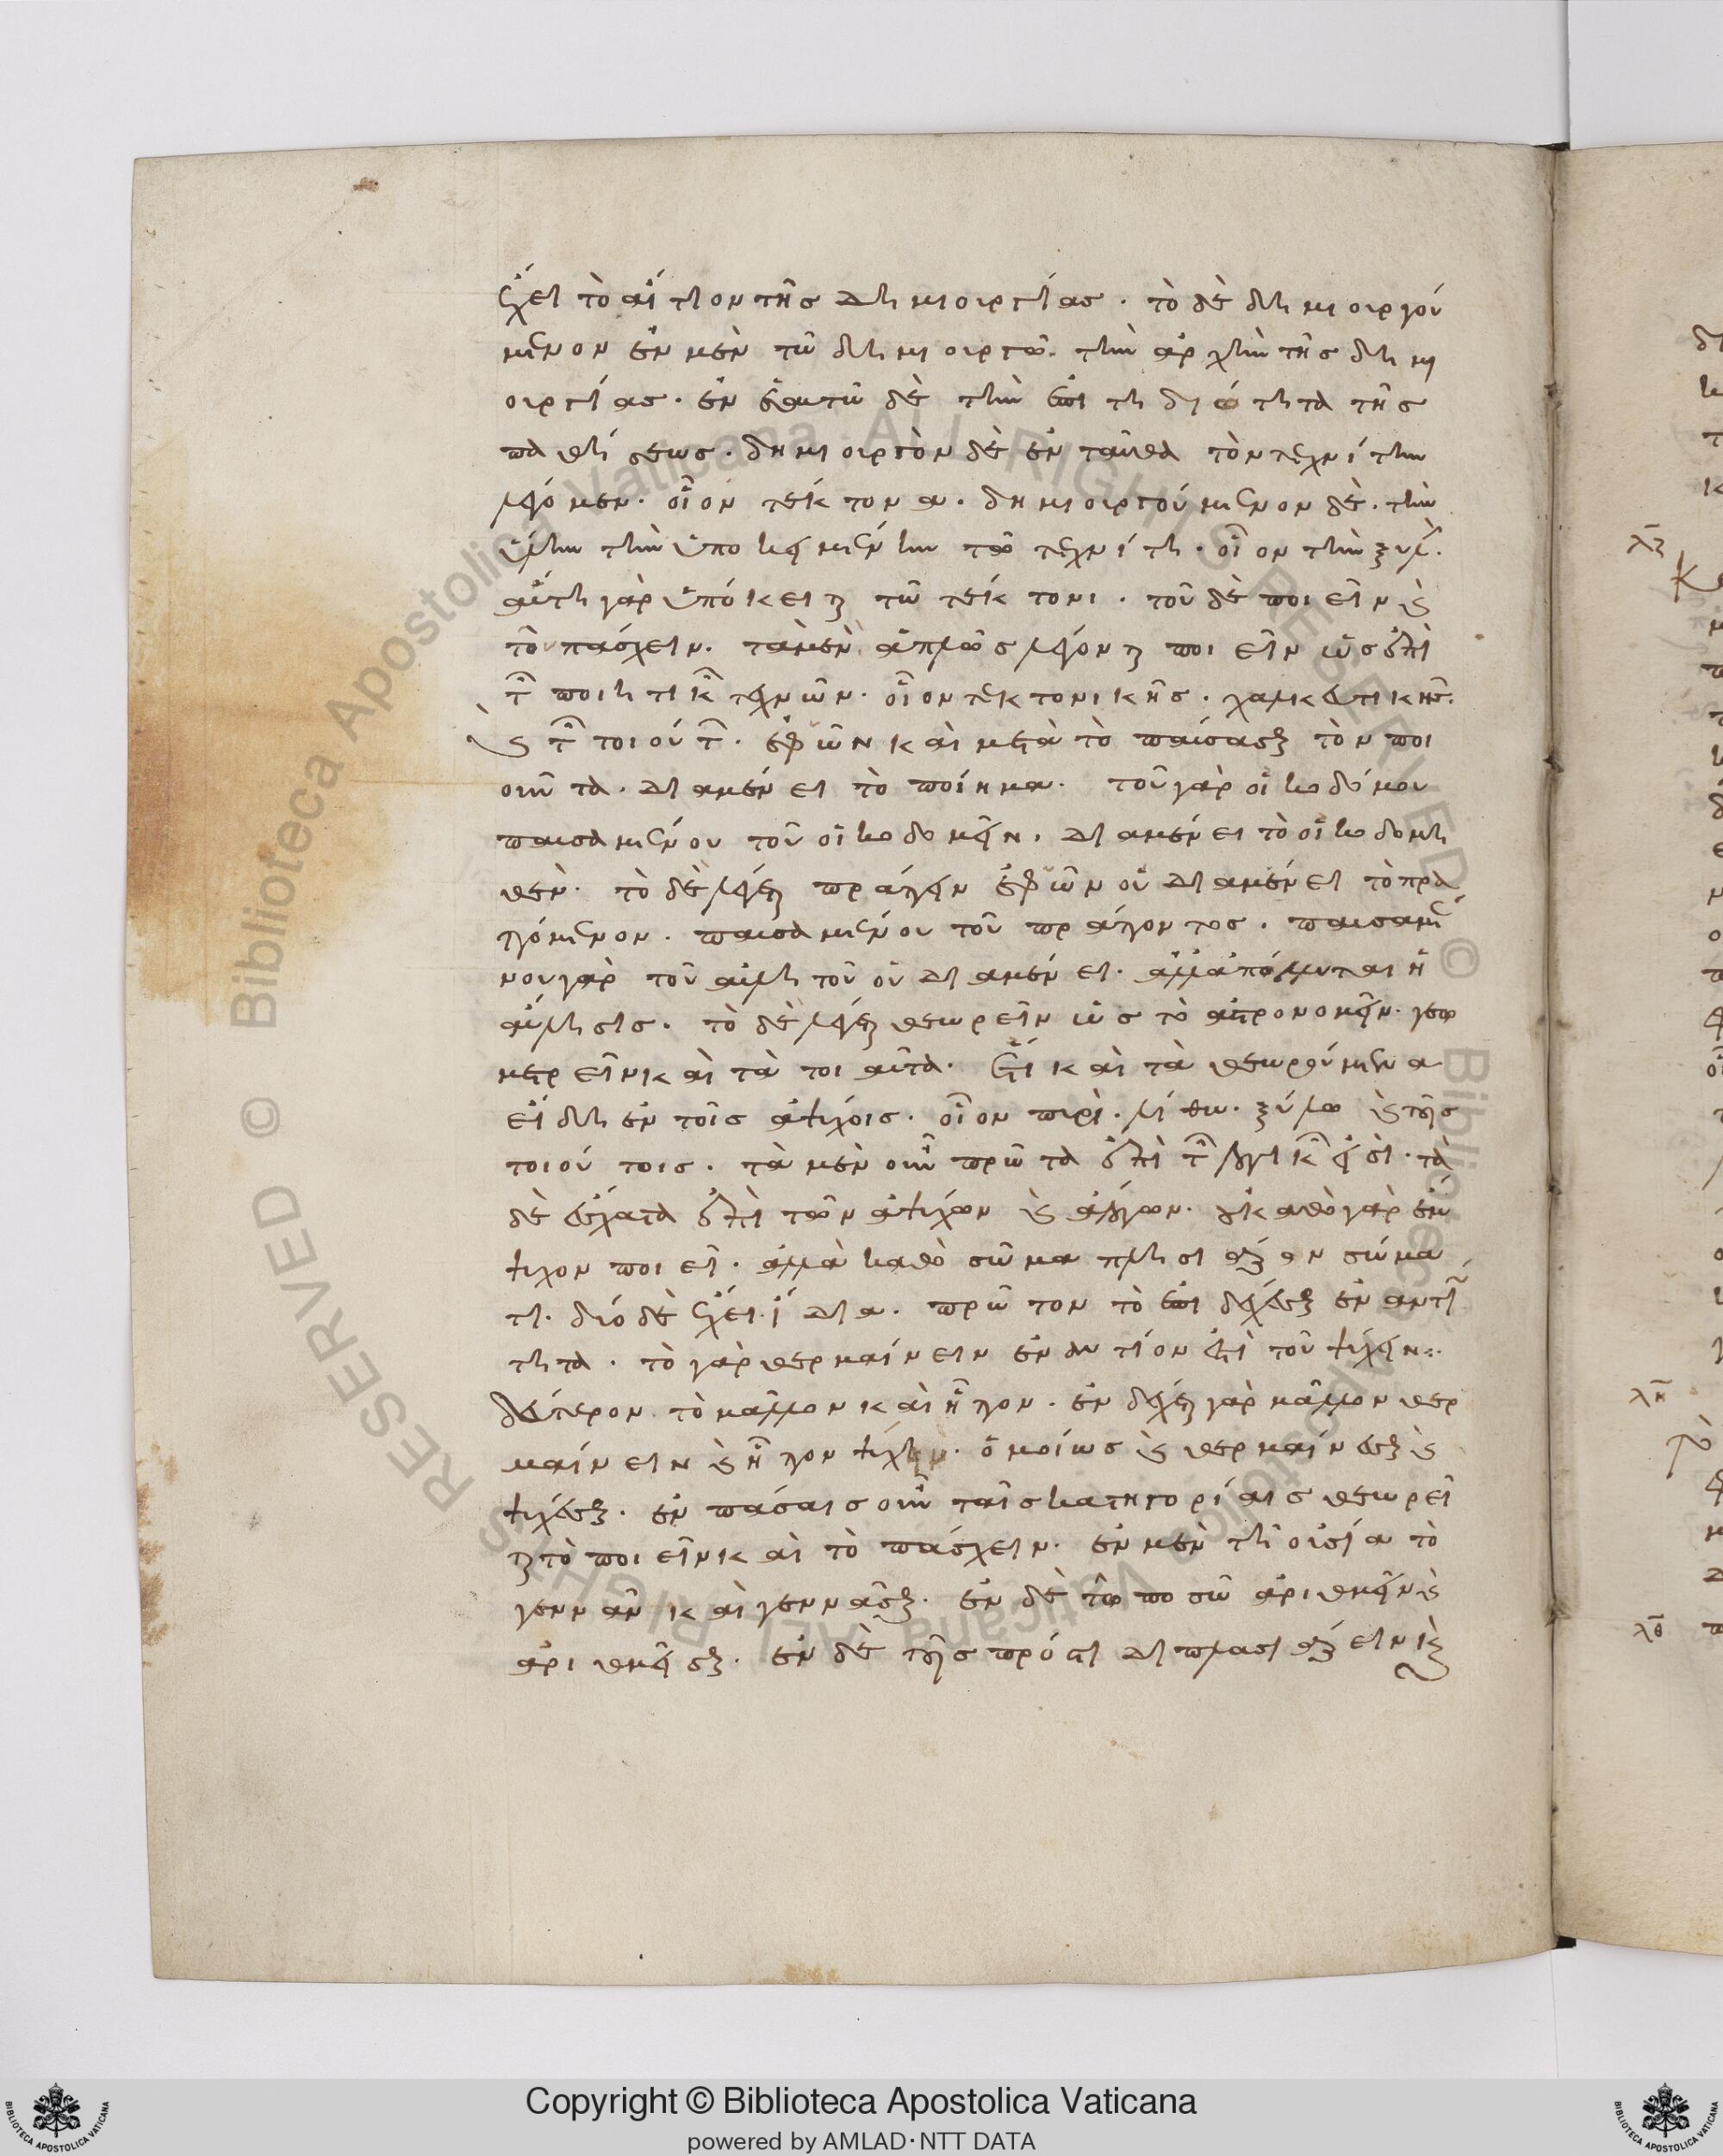 ἔχει τὸ αἴτιον τῆς δημιουργίας · τὸ δὲ δημιουργού
μενον ἐν μὲν τῶ δημιουργῶ · τὴν ἀρχὴν τῆς δημι
ουργίας · ἐν ἑαυτῶ δὲ τὴν ἐπιτηδιότητα τῆς
παθήσεως · δημιουργὸν δὲ ἐνταῦθα τὸν τεχνίτην
λέγομεν · οἷον τέκτονα · δημιουργούμενον δὲ · τὴν
ὕλην τὴν ὑποκειμένην τῶ τεχνίτη · οἷον τὴν ξυλ
αὕτη γὰρ ὑπόκειται τῶ τέκτονι · τοῦ δὲ ποιεῖν καὶ
τοῦ πάσχειν · τὰ μὲν ἁπλῶς λέγονται ποιεῖν ὡς ἐπὶ
τῶν ποιητικῶν τεχνῶν · οἷον τεκτονικῆς · χαλκευτικῆς ·
καὶ τῶν τοιούτων · ἐφ' ὧν καὶ μετὰ τὸ παύσασθαι τὸν ποι
οῦντα · διαμένει τὸ ποίημα · τοῦ γὰρ οἰκοδόμου
παυσαμένου τοῦ οἰκοδομεῖν · διαμένει τὸ οἰκοδομη
θέν · τὸ δὲ λέγεται πράττειν ἐφ' ὧν οὐ διαμένει τὸ πρα
ττόμενον · παυσαμένου τοῦ πράττοντος · παυσαμέ
νου γὰρ τοῦ αὐλητοῦ οὐ διαμένει · ἀλλ' ἀπόλλυται ἡ
αὔλησις · τὸ δὲ λέγεται θεωρεῖν ὡς τὸ ἀστρονομεῖν · γεω
μετρεῖν καὶ τὰ τοιαῦτα · ἔτι καὶ τὰ θεωρούμενα
εἴδη ἐν τοῖς ἀψύχοις · οἷον πυρὶ · λίθω · ξύλω καὶ τοῖς
τοιούτοις · τὰ μὲν οὖν πρῶτα ἐπὶ τῶν λογικῶν εἰσὶ · τὰ
δὲ ἔσχατα ἐπὶ τῶν ἀψύχων καὶ ἀλόγων · οὐ καθὸ γὰρ ἔμ
ψυχον ποιεῖ · ἀλλὰ καθὸ σῶμα πλησιάζον σώμα
τι · δύο δὲ ἔχει ἴδια · πρῶτον τὸ ἐπιδέχεσθαι ἐναντιό
τητα · τὸ γὰρ θερμαίνειν ἐναντίον ἐστὶ τοῦ ψύχειν ·
δεύτερον τὸ μᾶλλον καὶ ἧττον · ἐνδέχεται γὰρ μᾶλλον θερ
μαίνειν καὶ ἧττον ψύχειν · ὁμοίως καὶ θερμαίνεσθαι καὶ
ψύχεσθαι · ἐν πάσαις οὖν ταῖς κατηγορίαις θεωρεῖ
ται τὸ ποιεῖν καὶ τὸ πάσχειν · ἐν μὲν τῆ οὐσία τὸ
γεννᾶν καὶ γεννᾶσθαι · ἐν δὲ τῶ ποσῶ ἀριθμεῖν καὶ
ἀριθμεῖσθαι · ἐν δὲ τοῖς πρός τι διπλασιάζειν καὶ
λζ
λη
λθ
Copyright © Biblioteca Apostolica Vaticana
powered by AMLAD·NTT DATA